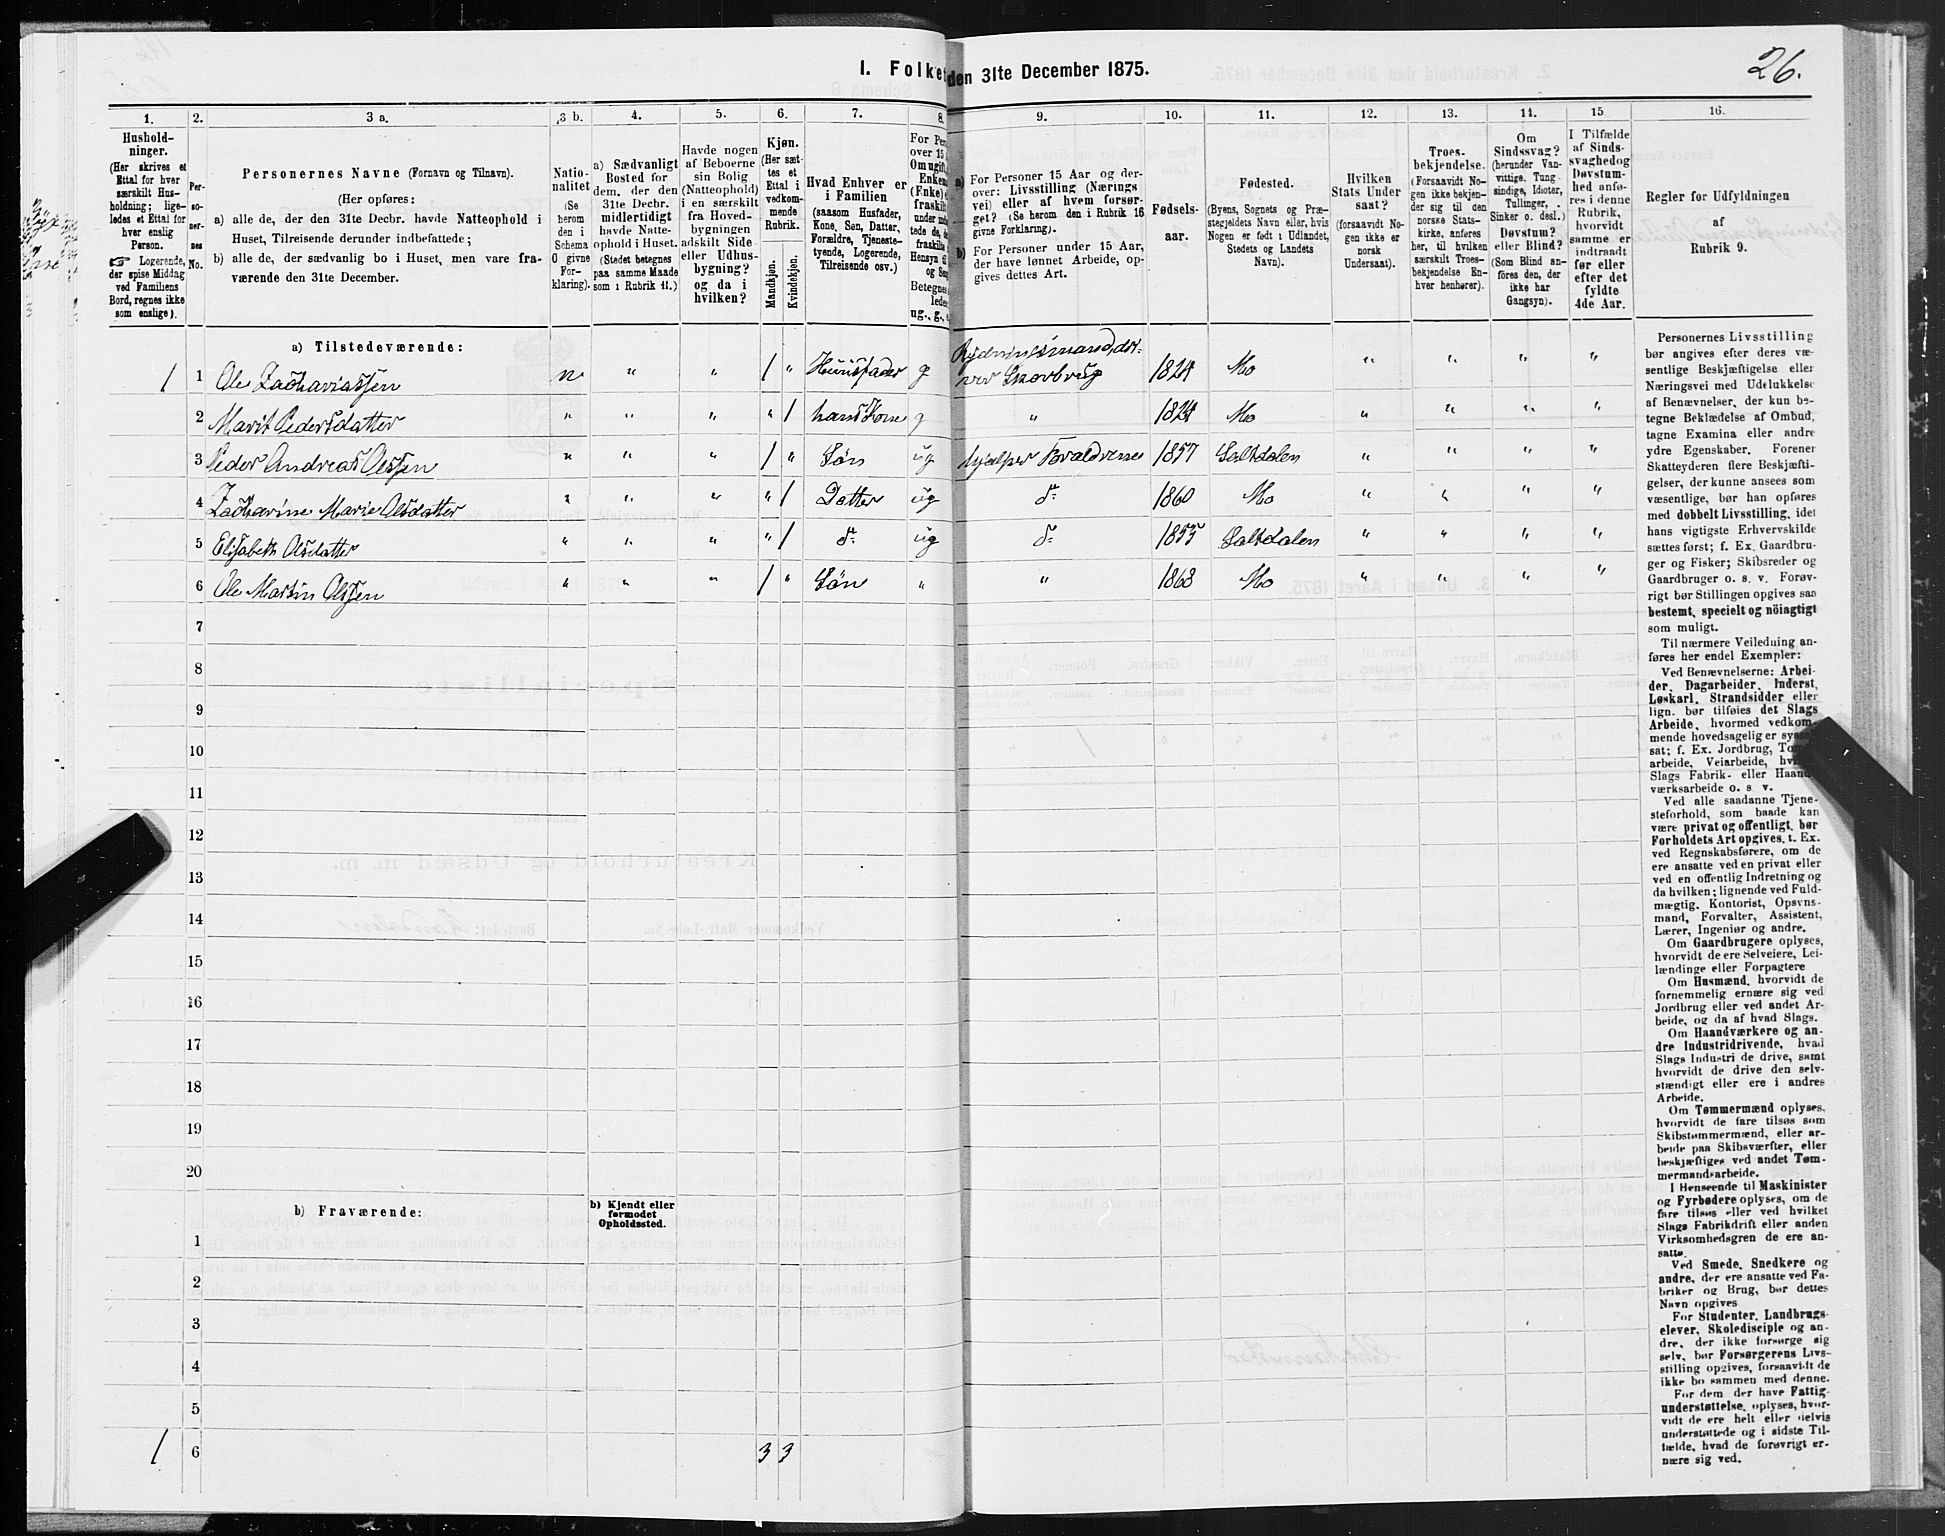 26.
I. Folket den 31te December 1875.
1.
2.
3 a.
3 b.
4.
5.
6.
7.
8.
9.
10.
11.
12.
13.
14.
15
16.
Hushold-
ninger.
(Her skrives et
Ettal for hver
særskilt Hus-
holdning; lige-
ledes et Ettal for
hver enslig
Person.
☞ Logerende,
der spise Middag
ved Familiens
Bord, regnes ikke
som enslige).
Per-
so-
ner-
nes
No.
Personernes Navne (Fornavn og Tilnavn).
(Her opføres:
a) alle de, der den 31te Decbr. havde Natteophold i
Huset, Tilreisende derunder indbefattede;
b) alle de, der sædvanlig bo i Huset, men vare fra-
værende den 31te December.
Natio-
nalitet
(Se
herom
den i
Schema
O givne
For-
klaring).
a) Sædvanligt
Bosted for
dem, der den
31te Decbr.
midlertidigt
havde Natte-
ophold i Huset.
(Stedet betegnes
paa samme Maade
som i Rubrik 11.)
Havde nogen
af Beboerne
sin Bolig
(Natteophold)
i en særskilt
fra Hoved-
bygningen
adskilt Side-
eller Udhus-
bygning?
og da i
hvilken?
Kjøn.
(Her sæt-
tes et
Ettal i
vedkom-
mende
Rubrik.
Mandkjøn.
Kvindekjøn.
Hvad Enhver er
i Familien
(saasom Husfader,
Kone, Søn, Datter,
Forældre, Tjeneste-
tyende, Logerende,
Tilreisende osv.)
For Per
over 15
Om ugift,
Enkem
(Fnke)
fraskilt
under
tede de,
fraskilte
Hensyn til
og Sen
Betegnes
lede
ug., g.,
a) For Personer 15 Aar og der-
over: Livsstilling (Nærings
vei) eller af hvem forsør-
get? (Se herom den i Rubrik 16
givne Forklaring).
b) For Personer under 15 Aar,
der have lønnet Arbeide, op-
gives dettes Art.
Fødsels-
aar.
Fødested.
(Byens, Sognets og Præ-
stegjeldets Navn eller, hvis
Nogen er født i Udlandet,
Stedets og Landets
Navn).
Hvilken
Stats Under
saat?
(forsaavidt No-
gen ikke er
norsk
Undersaat).
Troes-
bekjendelse.
(Forsaavidt No-
gen ikke bekjen-
der sig til den
norske Stats-
kirke, anføres
her, til hvilken
særskilt Troes-
bekjendelse En-
hver henhører).
Om
Sindssvag?
(herunder Van-
vittige, Tung-
sindige, Idioter,
Tullinger,
Sinker o. desl.)
Døvstum?
eller Blind?
(Som Blind an-
føres den, der
ikke har
Gangsyn).
I Tilfælde
af Sinds-
svaghedog
Døvstum-
hed anfø-
res i denne
Rubrik,
hvorvidt
samme er
indtraadt
før eller
efter det
fyldte
4de Aar.
Regler for Udfyldningen
af
Rubrik 9.
a) Tilstedeværende:
1 1 Ole Zachariassen n " " 1 " Huusfader g 1824 Mo " " " "
2 Marit Pedersdatter " " " " 1 hans Kone g " 1824 Mo " " " "
3 Peder Andreas Olssen " " " 1 " Søn ug hjælper Forældrene 1857 Saltdalen " " " "
4 Zacharine Marie Olsdatter " " " " 1 Datter ug d= 1860 Mo " " " "
5 Elisabeth Olsdatter " " " " 1 d= ug d= 1855 Saltdalen " " " "
6 Ole Martin Olssen " " " 1 " Søn " " 1868 Mo " " " "
7
8
9
10
11
12
13
14
15
16
17
18
19
20
b) Fraværende:
b) Kjendt eller
formodet
Opholdssted.
1
2
3
4
5
1 6 3 3
Personernes Livsstilling
bør angives efter deres væ-
sentlige Beskjæftigelse eller
Næringsvei med Udelukkelse
af Benævnelser, der kun be-
tegne Beklædelse af Ombud,
tagne Examina eller andre
ydre Egenskaber. Forener
Skatteyderen flere Beskjæfti-
gelser, der kunne ansees som
væsentlige, bør han opføres
med dobbelt Livsstilling, idet
hans vigtigste Erhvervskilde
sættes først; f. Ex. Gaardbru-
ger og Fisker; Skibsreder og
Gaardbruger o. s. v. Forøv-
rigt bør Stillingen opgives saa
bestemt, specielt og nöiagtigt
som muligt.
Til nærmere Veiledning an-
føres her endel Exempler:
Ved Benævnelserne: Arbei-
der, Dagarbeider, Inderst,
Løskarl, Strandsidder eller
lign. bør tilføies det Slags
Arbeide, hvormed vedkom-
mende hovedsagelig er syssel-
sat; f. Ex. Jordbrug,
arbeide, Veiarbeide,
Slags Fabrik- eller
værksarbeide o. s. v.
Ved alle saadanne Tjene-
steforhold, som baade kan
være privat og offentligt, bør
Forholdets Art opgives, t. Ex.
ved Regnskabsførere, om de
ere ansatte ved en privat eller
ved en offentlig Indretning og
da hvilken; lignende ved Fuld-
mægtig, Kontorist, Opsyns-
mand, Forvalter, Assistent,
Lærer, Ingeniør og andre.
Om Gaardbrugere oplyses,
hvorvidt de ere Selveiere, Lei-
lændinge eller Forpagtere
Om Husmænd, hvorvidt de
fornemmelig ernære sig ved
Jordbrug eller ved andet Ar-
beide, og da af hvad Slags.
Om Haandværkere og an-
dre Industridrivende, hvad
Slags Industri de drive, samt
hvorvidt de drive den selv-
stændigt eller ere i andres
Arbeide.
Om Tømmermænd oplyses,
hvorvidt de fare tilsøs som
Skibstømmermænd, eller ar-
beide paa Skibsværfter, eller
beskjæftiges ved andet Tøm-
mermandsarbeide.
I Henseende til Maskinister
og Fyrbødere oplyses, om de
fare tilsøs eller ved hvilket
Slags Fabrikdrift eller anden
Virksomhedsgren de ere an-
satte.
Ved Smede, Snedkere og
andre, der ere ansatte ved Fa-
briker og Brug, bør dettes
Navn opgives
For Studenter, Landbrugs-
elever, Skoledisciple og an-
dre, der ikke forsørge sig
selv, bør Forsørgerens Livs-
stilling opgives, forsaavidt de
ikke bo sammen med denne.
For dem der have Fattig-
understøttelse, oplyses, hvor-
vidt de ere helt eller delvis
understøttede og i sidste Til-
fælde, hvad de forøvrigt er-
nære sig ved.